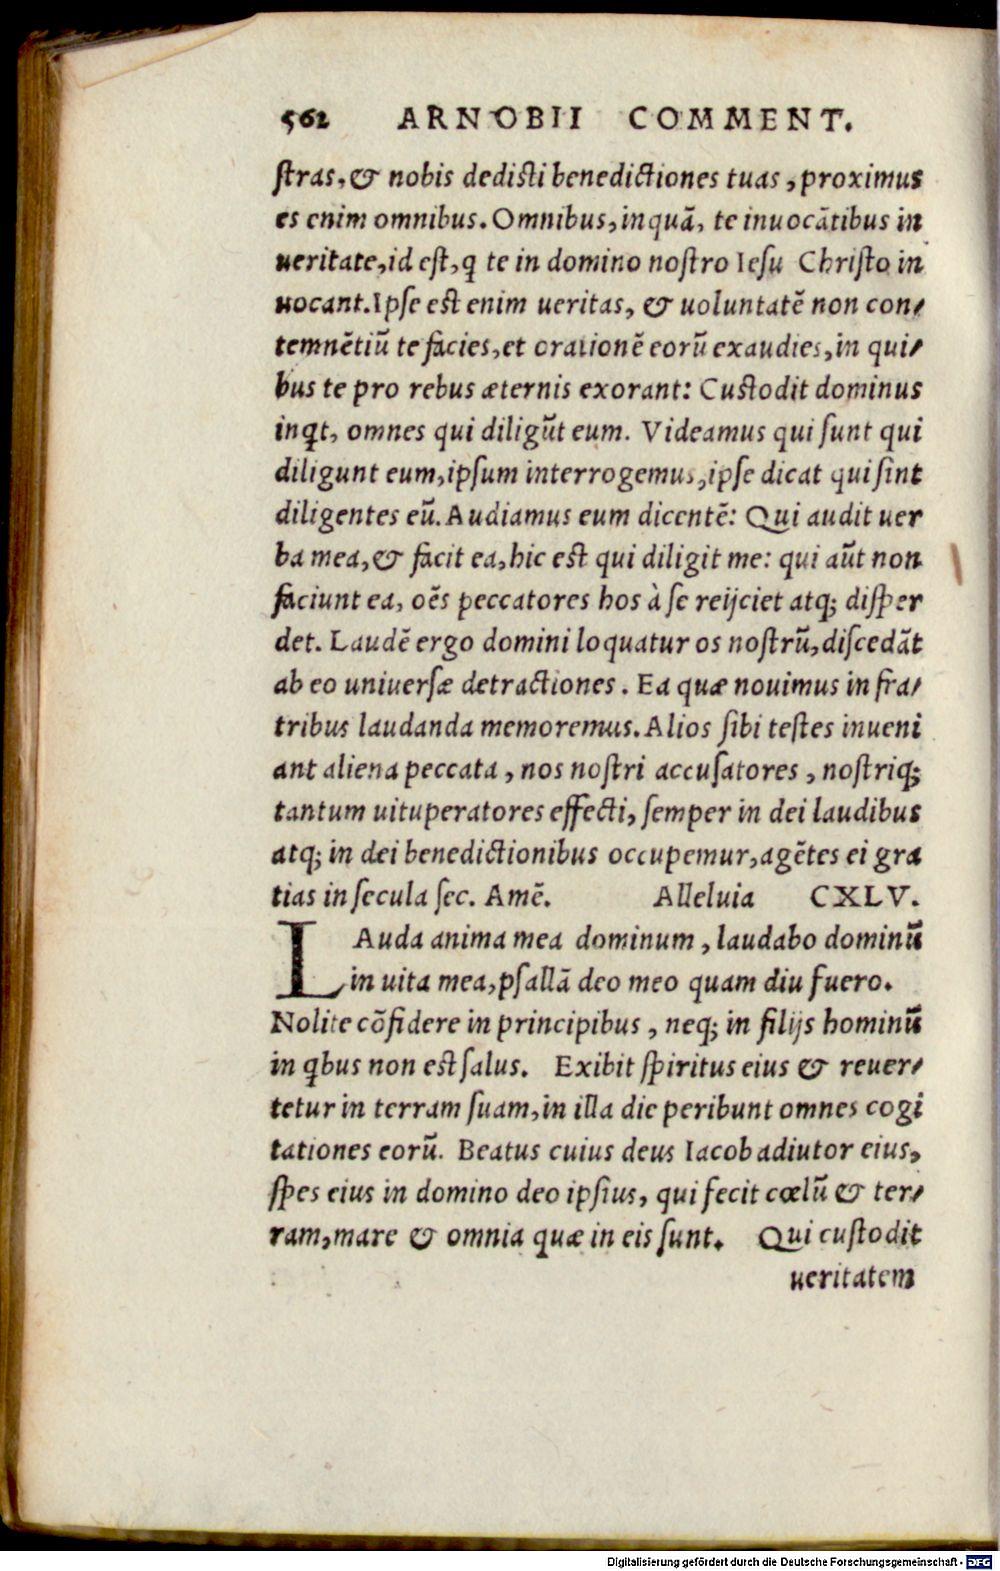 562 ARNOBII COMMENT.
stras, & nobis dedisti benedictiones tuas, proximus
es enim omnibus. Omnibus, inquā, te inuocātibus in
ueritate, id est, ꝗ te in domino nostro Iesu Christo in
uocant. Ipse est enim ueritas, & uoluntatē non con-
temnētiū te facies, et orationē eorū exaudies, in qui-
bus te pro rebus æternis exorant: Custodit dominus
inꝗt, omnes qui diligūt eum. Videamus qui sunt qui
diligunt eum, ipsum interrogemus, ipse dicat qui sint
diligentes eū. Audiamus eum dicentē: Qui audit uer
ba mea, & facit ea, hic est qui diligit me: qui aūt non
faciunt ea, oēs peccatores hos à se reijciet atq; disper
det. Laudē ergo domini loquatur os nostrū, discedāt
ab eo uniuersæ detractiones. Ea quæ nouimus in fra-
tribus laudanda memoremus. Alios sibi testes inueni
ant aliena peccata, nos nostri accusatores, nostriq;
tantum uituperatores effecti, semper in dei laudibus
atq; in dei benedictionibus occupemur, agētes ei gra
tias in secula sec. Amē. Alleluia CXLV.
LAuda anima mea dominum, laudabo dominū
in uita mea, psallā deo meo quam diu fuero.
Nolite cōfidere in principibus, neq; in filijs hominū
in ꝗbus non est salus. Exibit spiritus eius & reuer-
tetur in terram suam, in illa die peribunt omnes cogi
tationes eorū. Beatus cuius deus Iacob adiutor eius,
spes eius in domino deo ipsius, qui fecit cœlū & ter-
ram, mare & omnia quæ in eis sunt. Qui custodit
ueritatem
Digitalisierung gefördert durch die Deutsche Forschungsgemeinschaft - DFG